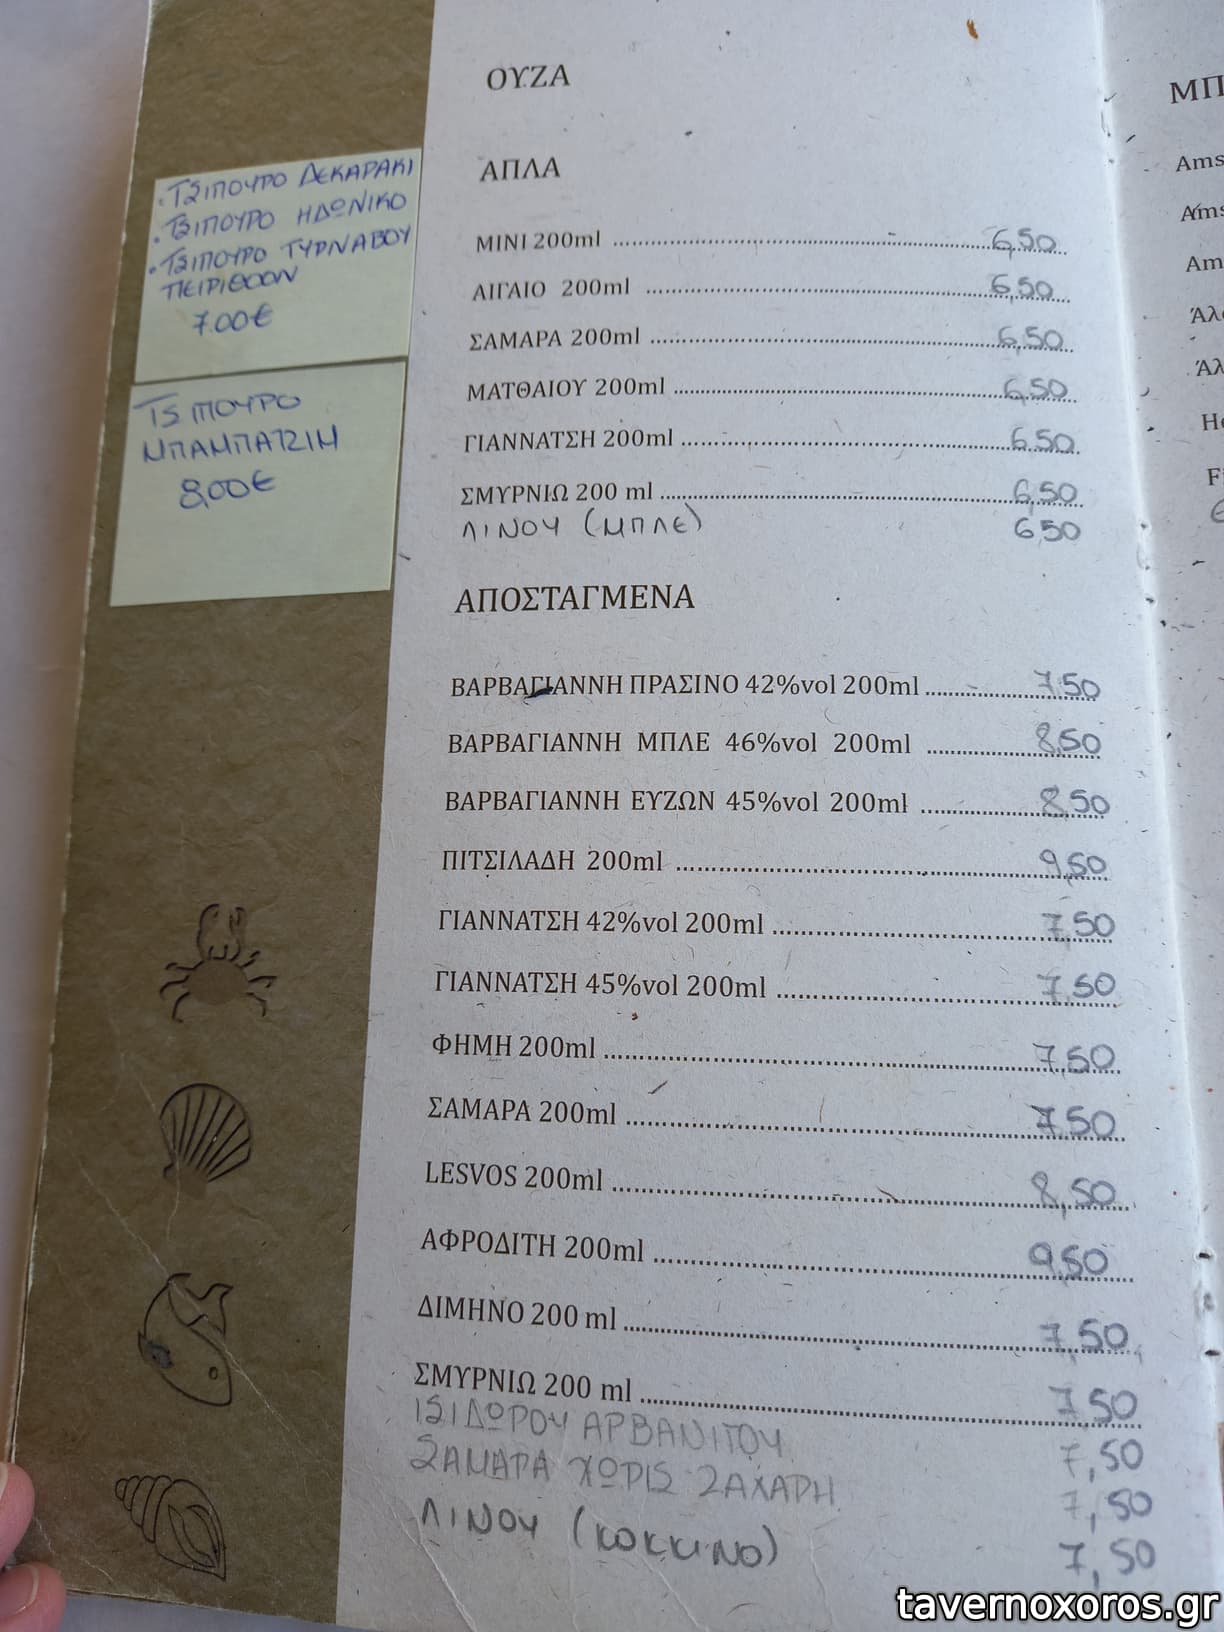 · ΤΣΙΠΟΥΡΟ ΔΕΚΑΡΑΚΙ
· ΤΣΙΠΟΥΡΟ ΗΔΩΝΙΚΟ
· ΤΣΙΠΟΥΡΟ ΤΥΡΝΑΒΟΥ
7.00€
ΤΣΙΠΟΥΡΟ
ΜΠΑΜΠΑΤΖΙΜ
8,00€
ΟΥΖΑ
ΑΠΛΑ
ΜΙΝΙ 200ml 6,50
ΑΙΓΑΙΟ 200ml 6,50
ΣΑΜΑΡΑ 200ml 6,50
ΜΑΤΘΑΙΟΥ 200ml 6,50
ΓΙΑΝΝΑΤΣΗ 200ml 6,50
ΣΜΥΡΝΙΩ 200 ml 6,50
ΛΙΝΟΥ (ΜΠΛΕ) 6,50
ΑΠΟΣΤΑΓΜΕΝΑ
ΒΑΡΒΑΓΙΑΝΝΗ ΠΡΑΣΙΝΟ 42%vol 200ml 7,50
ΒΑΡΒΑΓΙΑΝΝΗ ΜΠΛΕ 46%vol 200ml 8,50
ΒΑΡΒΑΓΙΑΝΝΗ ΕΥΖΩΝ 45%vol 200ml 8,50
ΠΙΤΣΙΛΑΔΗ 200ml 9,50
ΓΙΑΝΝΑΤΣΗ 42%vol 200ml 7,50
ΓΙΑΝΝΑΤΣΗ 45%vol 200ml 7,50
ΦΗΜΗ 200ml 7,50
ΣΑΜΑΡΑ 200ml 7,50
LESVOS 200ml 8,50
ΑΦΡΟΔΙΤΗ 200ml 9,50
ΔΙΜΗΝΟ 200 ml 7,50
ΣΜΥΡΝΙΩ 200 ml 7,50
ΙΣΙΔΩΡΟΥ ΑΡΒΑΝΙΤΟΥ 7,50
ΣΑΜΑΡΑ ΧΩΡΙΣ ΖΑΧΑΡΗ 7,50
ΛΙΝΟΥ (ΚΟΚΚΙΝΟ) 7,50
tavernoxoros.gr